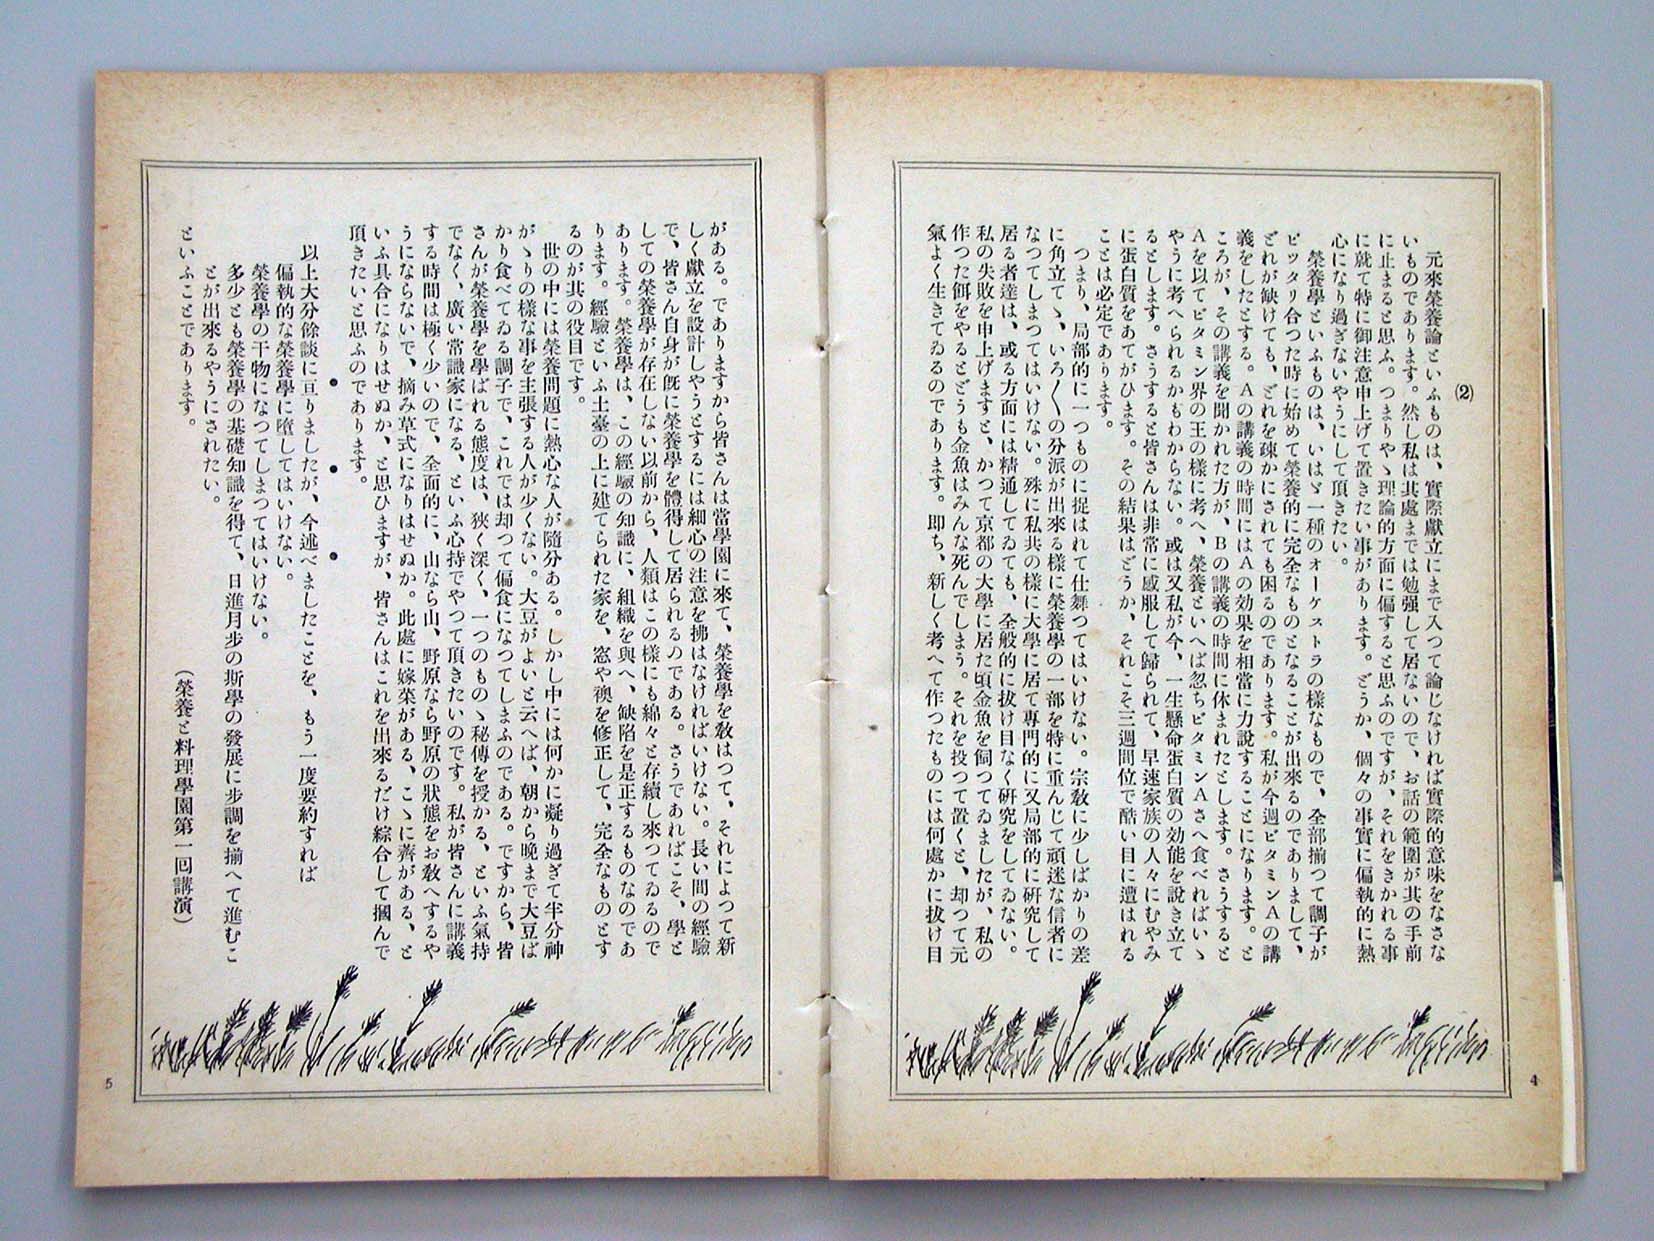 (2)
元來榮養論といふものは、實際獻立にまで入つて論じなければ實際的意味をなさな
いものであります。然し私は其處までは勉强して居ないので、お話の範圍が其の手前
に止まると思ふ。つまりやゝ理論的方面に偏すると思ふのですが、それをきかれる事
に就て特に御注意申上げて置きたい事があります。どうか、個々の事實に偏執的に熱
心になり過ぎないやうにして頂きたい。
榮養學といふものは、いはゞ一種のオーケストラの樣なもので、全部揃つて調子が
ピッタリ合つた時に始めて榮養的に完全なものとなることが出來るのでありまして、
どれが缺けても、どれを疎かにされても困るのであります。私が今週ビタミンAの講
義をしたとする。Aの講義の時間にはAの効果を相當に力說することになります。と
ころが、その講義を聞かれた方が、Bの講義の時間に休まれたとします。さうすると
Aを以てビタミン界の王の樣に考へ、榮養といへば忽ちビタミンAさへ食べればいゝ
やうに考へられるかもわからない。或は又私が今、一生懸命蛋白質の効能を說き立て
るとします。さうすると皆さんは非常に感服して歸られて、早速家族の人々にむやみ
に蛋白質をあてがひます。その結果はどうか、それこそ三週間位で酷い目に遭はれる
ことは必定であります。
つまり、局部的に一つものに捉はれて仕舞つてはいけない。宗教に少しばかりの差
に角立てゝ、いろ〱の分派が出來る樣に榮養學の一部を特に重んじて頑迷な信者に
なつてしまつてはいけない。殊に私共の樣に大學に居て專門的に又局部的に硏究して
居る者達は、或る方面には精通してゐても、全般的に拔け目なく硏究をしてゐない。
私の失敗を申上げますと、かつて京都の大學に居た頃金魚を飼つてゐましたが、私の
作つた餌をやるとどうも金魚はみんな死んでしまう。それを投つて置くと、却つて元
氣よく生きてゐるのであります。即ち、新しく考へて作つたものには何處かに拔け目
4
がある。でありますから皆さんは當學園に來て、榮養學を敎はつて、それによつて新
しく獻立を設計しやうとするには細心の注意を拂はなければいけない。長い間の經驗
で、皆さん自身が旣に榮養學を體得して居られるのである。さうであればこそ、學と
しての榮養學が存在しない以前から、人類はこの樣にも綿々と存續し來つてゐるので
あります。榮養學は、この經驗の知識に、組織を與へ、缺陷を是正するものなのであ
ります。經驗といふ土臺の上に建てられた家を、窓や襖を修正して、完全なものとす
るのが其の役目です。
世の中には榮養問題に熱心な人が隨分ある。しかし中には何かに凝り過ぎて半分神
がゝりの樣な事を主張する人が少くない。大豆がよいと云へば、朝から晚まで大豆ば
かり食べてゐる調子で、これでは却つて偏食になつてしまふのである。ですから、皆
さんが榮養學を學ばれる態度は、狹く深く、一つのものゝ祕傳を授かる、といふ氣持
でなく、廣い常識家になる、といふ心持でやつて頂きたいのです。私が皆さんに講義
する時間は極く少いので、全面的に、山なら山、野原なら野原の狀態をお敎へするや
うにならないで、摘み草式になりはせぬか。此處に嫁菜がある、こゝに薺がある、と
いふ具合になりはせぬか、と思ひますが、皆さんはこれを出來るだけ綜合して摑んで
頂きたいと思ふのであります。
● ● ●
以上大分餘談に亘りましたが、今述べましたことを、もう一度要約すれば
偏執的な榮養學に墮してはいけない。
榮養學の干物になつてしまつてはいけない。
多少とも榮養學の基礎知識を得て、日進月步の斯學の發展に步調を揃へて進むこ
とが出來るやうにされたい。
といふことであります。
(榮養と料理學園第一回講演)
5